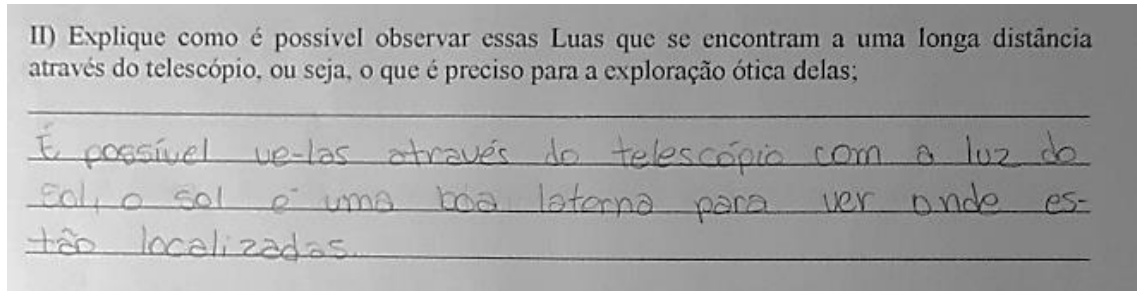 II) Explique como é possível observar essas Luas que se encontram a uma longa distância
através do telescópio, ou seja, o que é preciso para a exploração ótica delas;
É possível ve-las através do telescópio com a luz do
sol, o sol é uma boa laterna para ver onde es-
tão localizadas.